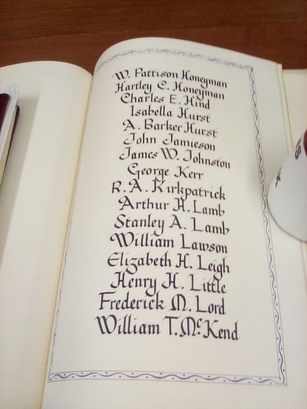 W. Pattison Honeyman
Hartley C. Honeyman
Charles E. Hind
Isabella Hurst
A. Barker Hurst
John Jamieson
James W. Johnston
George Kerr
R. A. Kirkpatrick
Arthur H. Lamb
Stanley A. Lamb
William Lawson
Elizabeth H. Leigh
Henry H. Little
Frederick M. Lord
William T. McKend